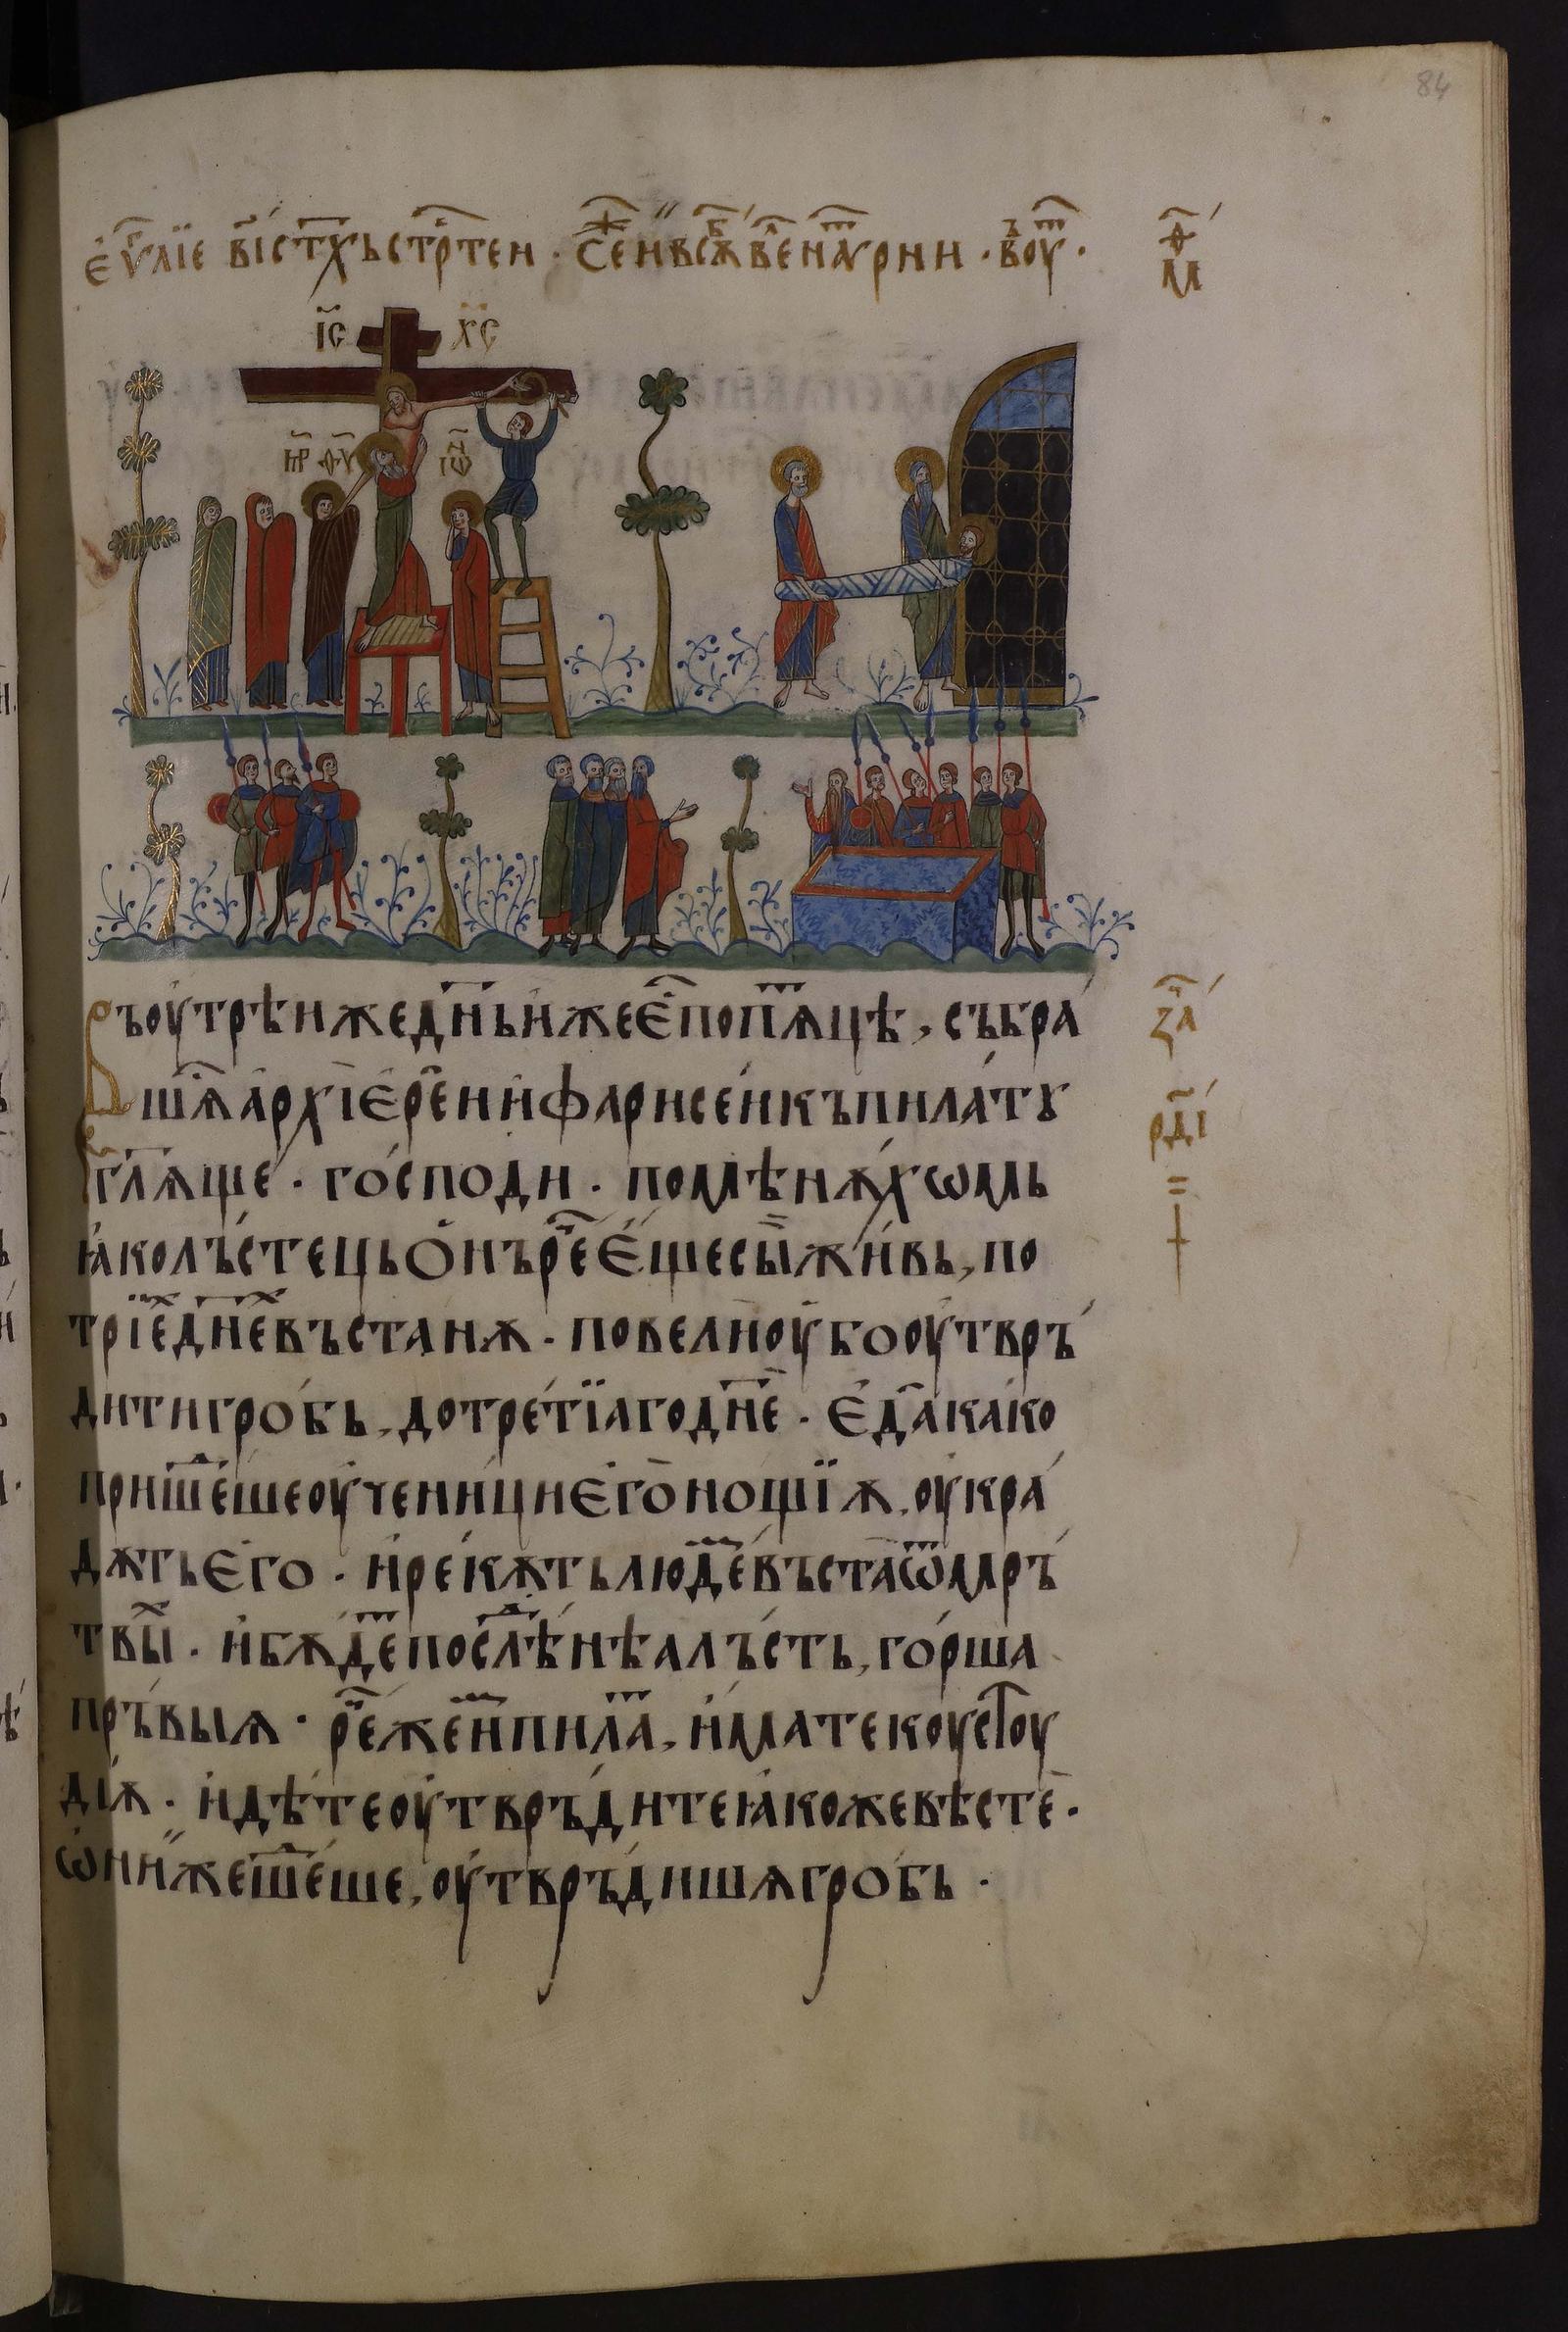 84
є҆ѵⷢ҇лїе в҃і ст҃хъ стрⷭ҇теи · сеⷤ и въ сѫⷠ҇ веⷧ҇ на ѹ҆рни · в оуⷮ ·
м ѳⷣ
і҃с х҃с
м҃р ѳ҃ѵ і҆ѡⷩ҇
Въ оу҆трѣи же дн҃ь и҆же є҆ⷭ҇ по пⷮѧцѣ, събра́
шѧⷭ҇ а҆рхїє҆реⷪ҇и и҆ фарисе́и къ пила́тꙋ
гл҃ѧще · го́споди · помѣнѫ́хѡмь
ꙗ҆ко лъ́стець ѻ҆нъ реⷱ҇ є҆ще сы́и жи́вь, по
трїеⷯ дн҃еⷯ въстанѫ · повели оу҆бо оу҆твръ́
дити гро́бь, до тре́тїаго дн҃е · є҆да ка́ко
прише́ⷣше оу҆чени́ци є҆го̀ нощїѫ, оу҆кра́
дѫть є҆го · и҆ рекѫ́ть людеⷨ въстаⷭ҇ ѿ мръ́
твыⷯ · и҆ бѫ́деⷮ послѣ́ⷣнѣа лъ́сть, го́рша
пръ́выѧ · реⷱ҇ же иⷨ пилаⷮ, и҆мате коустоу
ді́ѫ · и҆дѣ́те оу҆твръди́те ꙗ҆коже вѣстѐ ·
ѡ҆ни́ же ше́ⷣше, оу҆твръди́шѧ гробь ·
заⷱ҇
рд҃і
=